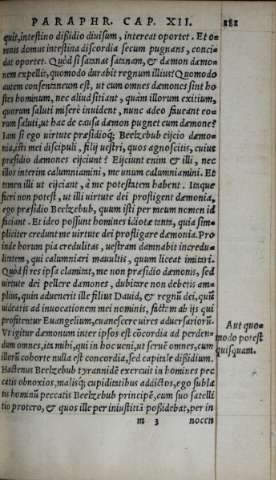 PARAPHR. CAP. XII. 282
quit, intestino dissidio diuisum, intereat oportet. Et o-
mnis domus intestina discordia secum pugnans, conci-
dat oportet. Quòd si satanas satanam, & dæmon dæmo-
nem expellit, quomodo durabit regnum illius? Quomodo
autem consentaneum est, ut cum omnes dæmones sint ho
stes hominum, nec aliud sitiant, quàm illorum exitium,
quorum saluti miserè inuident, nunc adeo faueant eo-
rum saluti, ut hac de causa dæmon pugnet cum dæmone?
Iam si ego uirtute præsidioq; Beelzebub eijcio dæmo-
nia, isti mei discipuli, filij uestri, quos agnoscitis, cuius
præsidio dæmones eijciunt? Eijciunt enim & illi, nec
illos interim calumniamini, me unum calumniamini. Et
tamen illi ut eijciant, à me potestatem habent. Itaque
fieri non potest, ut illi uirtute dei profligent dæmonia,
ego præsidio Beelzebub, quum isti per meum nomen id
faciant. Et ideo possunt homines idiotæ tanta, quia sim-
pliciter credunt me uirtute dei profligare dæmonia. Pro
inde horum pia credulitas, uestram damnabit incredu-
litatem, qui calumniari mauultis, quum liceat imitari.
Quòd si res ipsa clamitat, me non præsidio dæmonis, sed
uirtute dei pellere dæmones, dubitare non debetis am-
plius, quin aduenerit ille filius Dauid, & regnũ dei, quũ
uideatis ad inuocationem mei nominis, factam ab ijs qui
profitentur Euangelium, euanescere uires aduersarioru̅.
Vt igitur dæmonum inter ipsos est cõcordia ad perden-
dum omnes, ita mihi, qui in hoc ueni, ut seruẽ omnes, cum
illorũ cohorte nulla est concordia, sed capitale dissidium.
Hactenus Beelzebub tyrannidẽ exercuit in homines pec
catis obnoxios, malisq; cupiditatibus addictos, ego subla
tis hominũ peccatis Beelzebub principẽ, cum suo satelli
tio protero, & quos ille per iniustitiã possidebat, per in
m 3 nocen
Aut quo=
modo potest
quisquam.